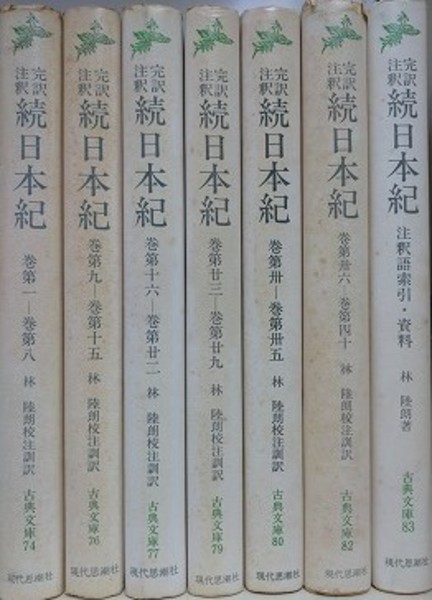 完訳
注釈
続日本紀
巻第一―巻第八
林 陸朗校注訓訳
古典文庫74
現代思潮社
完訳
注釈
続日本紀
巻第九―巻第十五
林 陸朗校注訓訳
古典文庫76
現代思潮社
完訳
注釈
続日本紀
巻第十六―巻第廿二
林 陸朗校注訓訳
古典文庫77
現代思潮社
完訳
注釈
続日本紀
巻第廿三―巻第廿九
林 陸朗校注訓訳
古典文庫79
現代思潮社
完訳
注釈
続日本紀
巻第卅―巻第卅五
林 陸朗校注訓訳
古典文庫80
現代思潮社
完訳
注釈
続日本紀
巻第卅六―巻第四十
林 陸朗校注訓訳
古典文庫82
現代思潮社
完訳
注釈
続日本紀
注釈語索引・資料
林 陸朗著
古典文庫83
現代思潮社